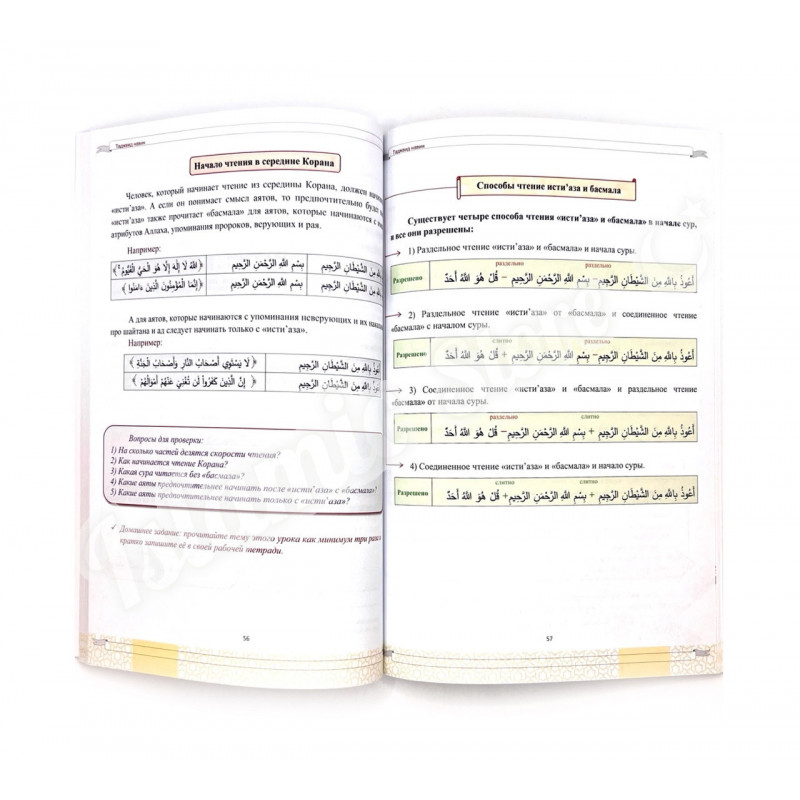 Таджвид
Начало чтения в середине Корана
Человек, который начинает чтение из середины Корана, должен
«исти’аза». А если он понимает смысл аятов, то предпочтительно
«исти’аза» также прочитает «басмала» для аятов, которые начинаются с
атрибутов Аллаха, упоминания пророков, верующих и рая.
Например:
﴿ اللَّهُ لَا إِلَٰهَ إِلَّا هُوَ الْحَيُّ الْقَيُّومُ ﴾ بِسْمِ اللَّهِ الرَّحْمَنِ الرَّحِيمِ بِاللَّهِ مِنَ الشَّيْطَانِ الرَّجِيمِ
﴿ إِنَّمَا الْمُؤْمِنُونَ الَّذِينَ ءَامَنُوا ﴾ بِسْمِ اللَّهِ الرَّحْمَنِ الرَّحِيمِ بِاللَّهِ مِنَ الشَّيْطَانِ الرَّجِيمِ
А для аятов, которые начинаются с упоминания неверующих и их
про шайтана и ад следует начинать только с «исти’аза».
Например:
﴿ لَا يَسْتَوِي أَصْحَابُ النَّارِ وَأَصْحَابُ الْجَنَّةِ ﴾ بِاللَّهِ مِنَ الشَّيْطَانِ الرَّجِيمِ
﴿ إِنَّ الَّذِينَ كَفَرُوا لَن تُغْنِيَ عَنْهُمْ أَمْوَالُهُمْ ﴾ بِاللَّهِ مِنَ الشَّيْطَانِ الرَّجِيمِ
Вопросы для проверки:
1) На сколько частей делятся скорости чтения?
2) Как начинается чтение Корана?
3) Какая сура читается без «басмала»?
4) Какие аяты предпочтительнее начинать после «исти’аза» с «басмала»?
5) Какие аяты предпочтительнее начинать только с «исти’аза»?
✓ Домашнее задание: прочитайте тему этого урока как минимум три раза
кратко запишите её в своей рабочей тетради.
56
Таджвид
Способы чтение исти’аза и басмала
Существует четыре способа чтения «исти’аза» и «басмала» в начале сур,
и все они разрешены:
1) Раздельное чтение «исти’аза» и «басмала» и начала суры.
раздельно раздельно
Разрешено أَعُوذُ بِاللَّهِ مِنَ الشَّيْطَانِ الرَّجِيمِ – بِسْمِ اللَّهِ الرَّحْمَنِ الرَّحِيمِ – قُلْ هُوَ اللَّهُ أَحَدٌ
2) Раздельное чтение «исти’аза» от «басмала» и соединенное чтение
«басмала» с началом суры.
слитно раздельно
Разрешено أَعُوذُ بِاللَّهِ مِنَ الشَّيْطَانِ الرَّجِيمِ – بِسْمِ اللَّهِ الرَّحْمَنِ الرَّحِيمِ + قُلْ هُوَ اللَّهُ أَحَدٌ
3) Соединенное чтение «исти’аза» и «басмала» и раздельное чтение
«басмала» от начала суры.
раздельно слитно
Разрешено أَعُوذُ بِاللَّهِ مِنَ الشَّيْطَانِ الرَّجِيمِ + بِسْمِ اللَّهِ الرَّحْمَنِ الرَّحِيمِ – قُلْ هُوَ اللَّهُ أَحَدٌ
4) Соединенное чтение «исти’аза» и «басмала» и начало суры.
слитно слитно
Разрешено أَعُوذُ بِاللَّهِ مِنَ الشَّيْطَانِ الرَّجِيمِ + بِسْمِ اللَّهِ الرَّحْمَنِ الرَّحِيمِ + قُلْ هُوَ اللَّهُ أَحَدٌ
57